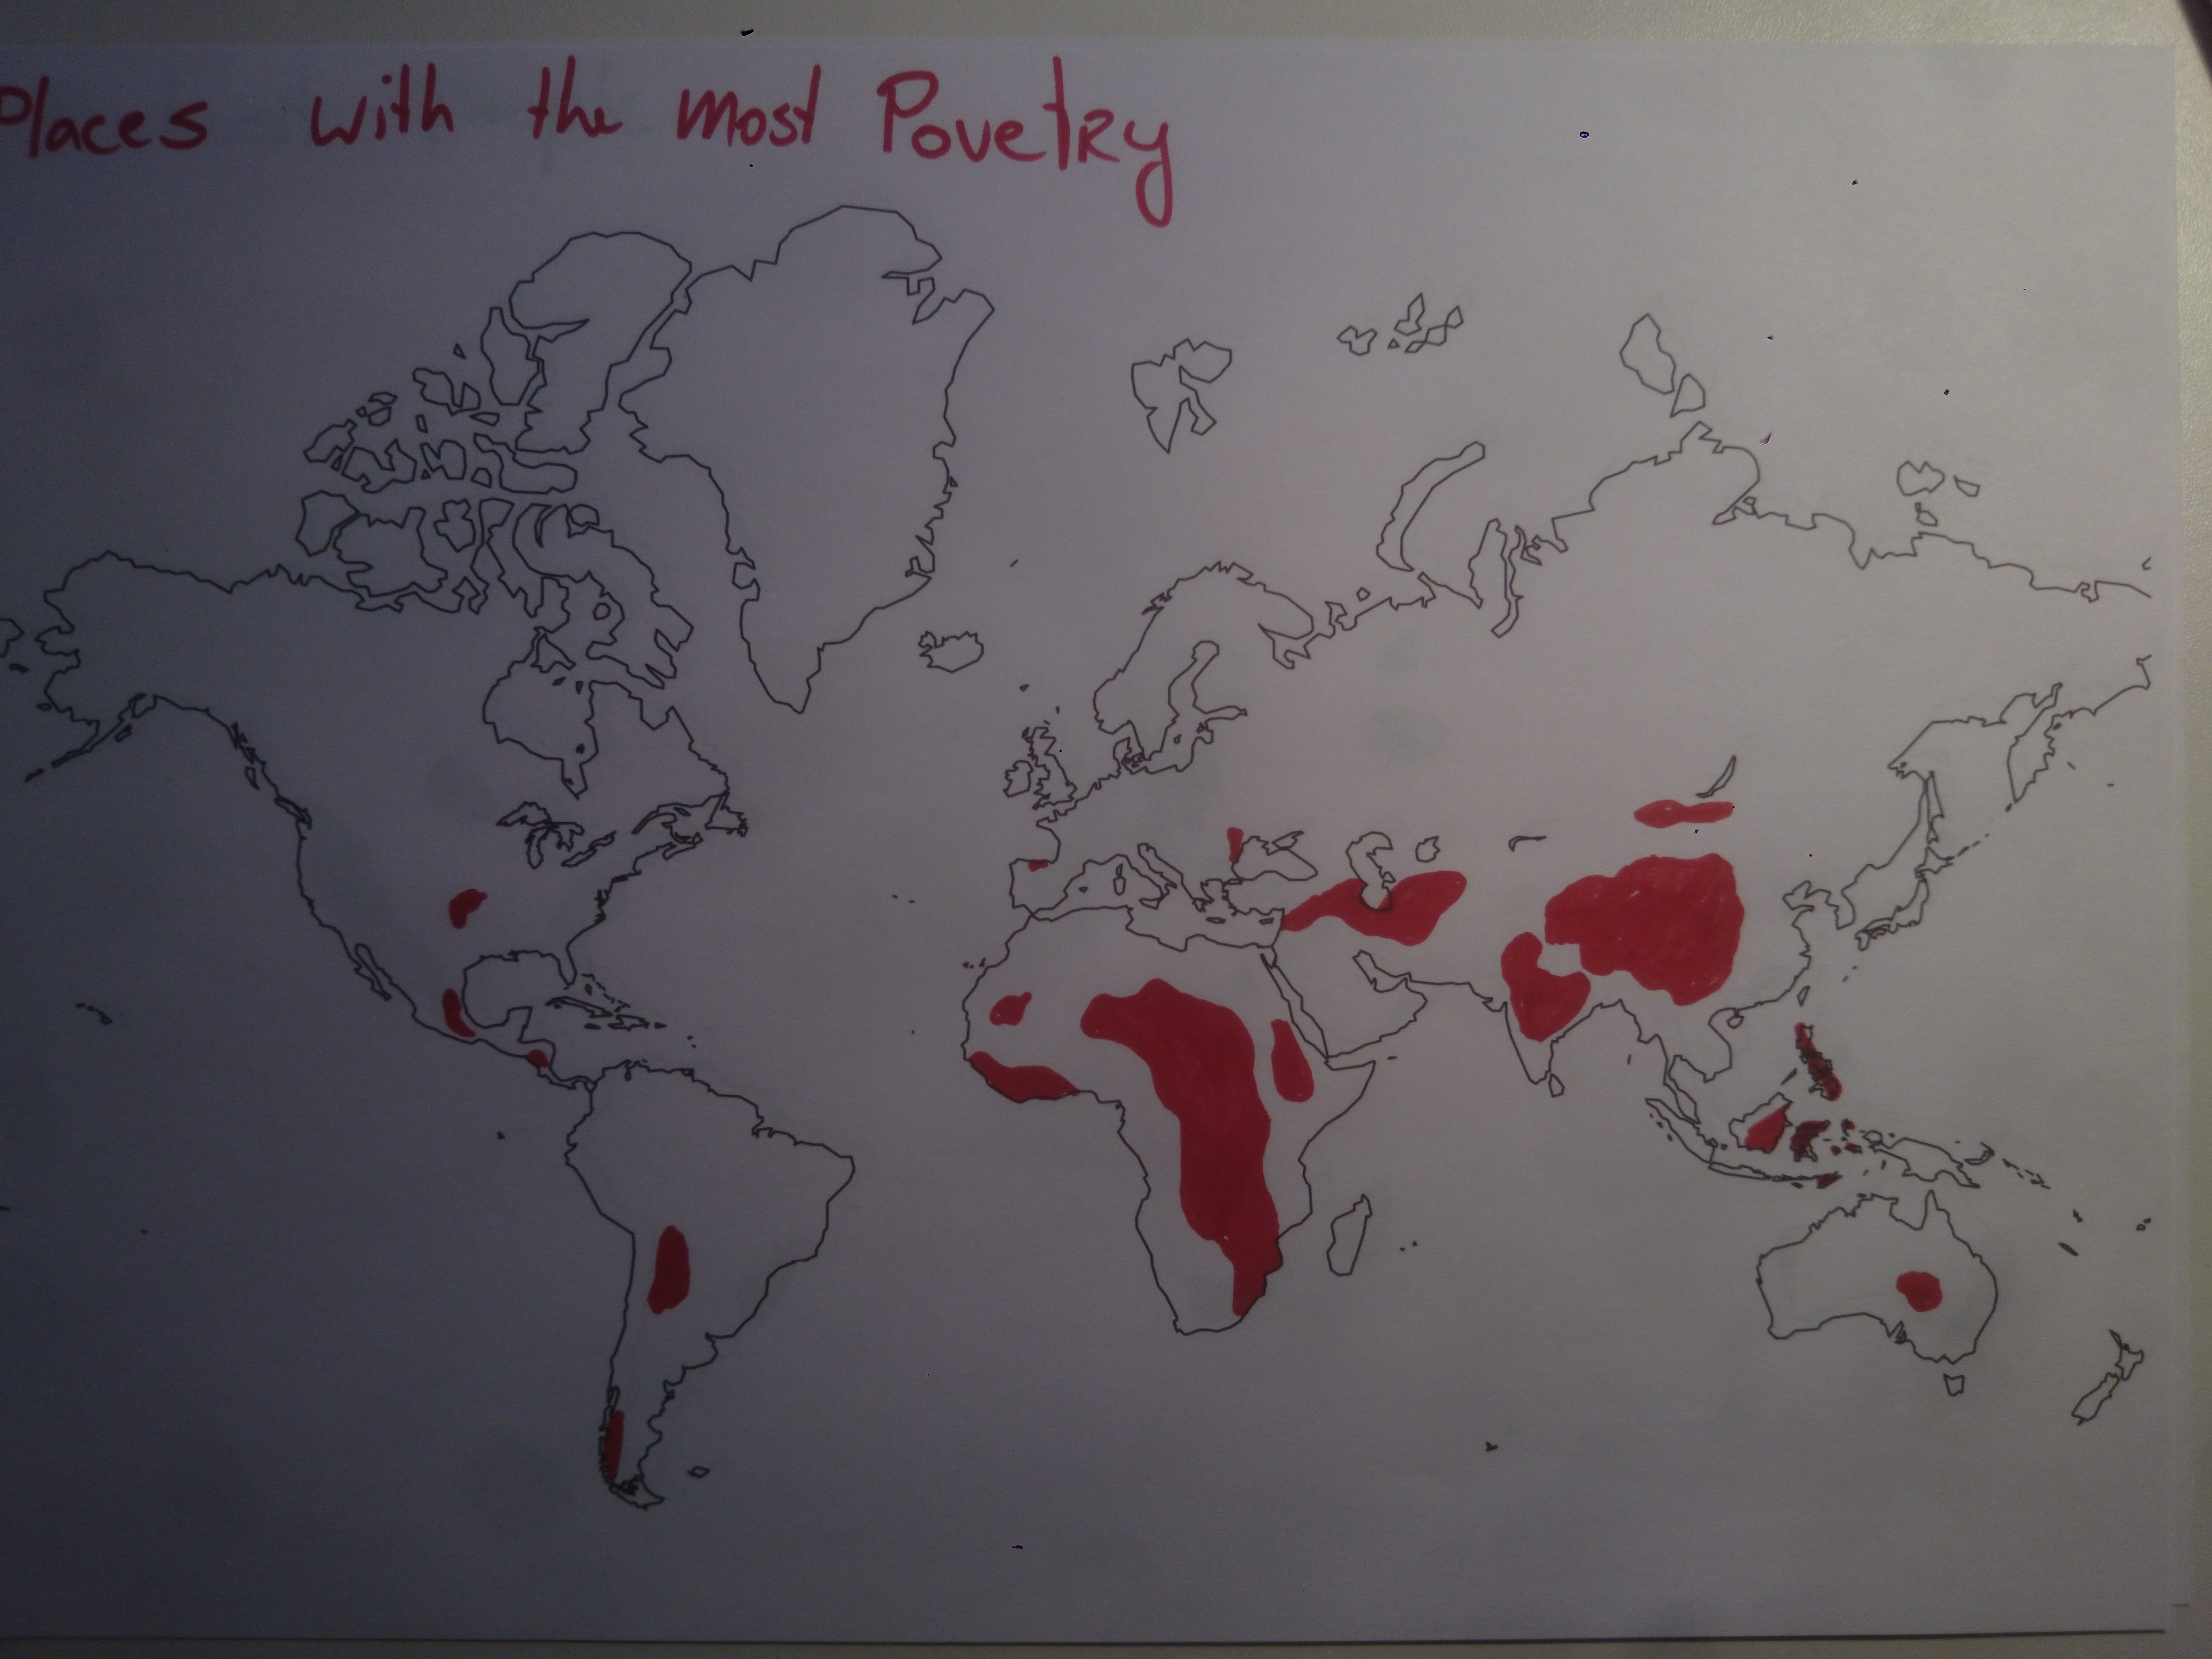 Places with the most Povetry